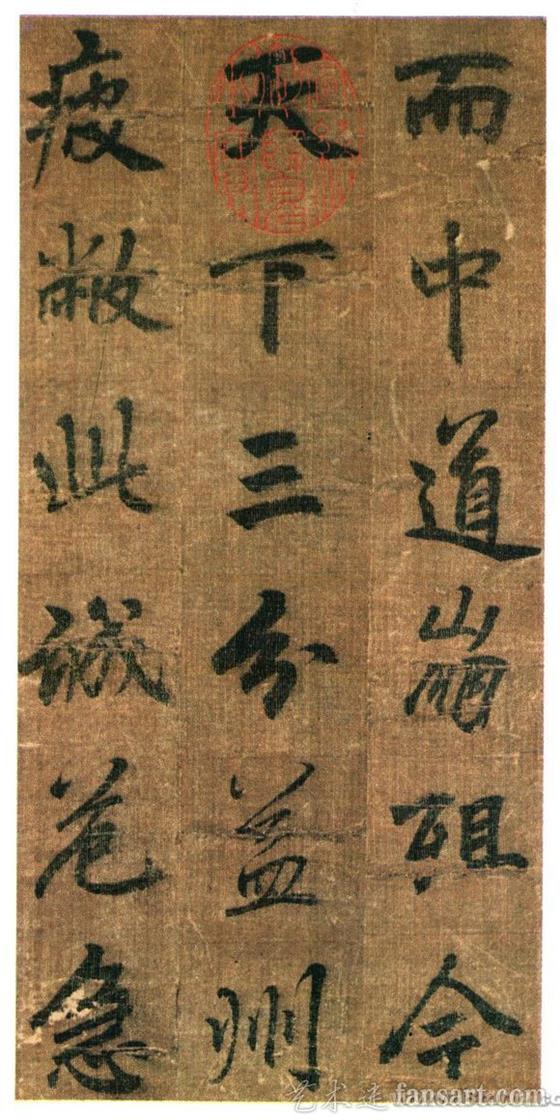 而中道崩殂今
天下三分益州
疲敝此誠危急
fansart.com